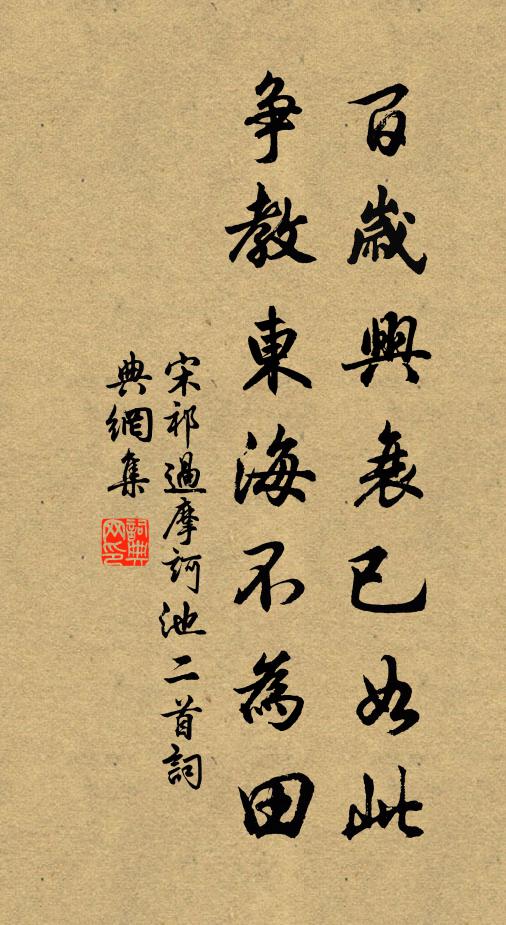 百歲興衰已如此
爭教東海不為田
宋祁過摩訶池二首詞
典網集
詞典
网印